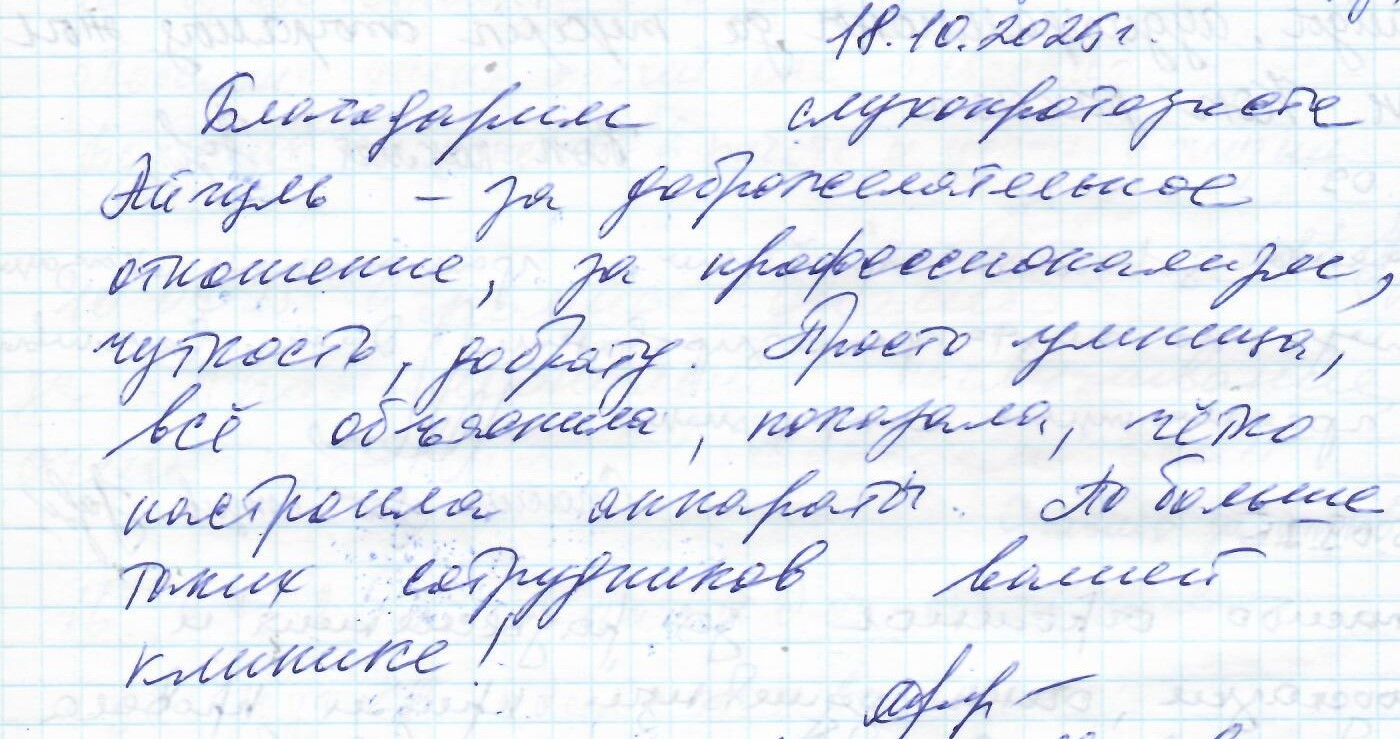 18.10.2025г.
Благодарим слухопротезиста
Айгуль – за доброжелательное
отношение, за профессионализм,
чуткость, доброту. Просто умница,
всё объяснила, показала, чётко
настроила аппараты. Побольше
таких сотрудников вашей
клинике!